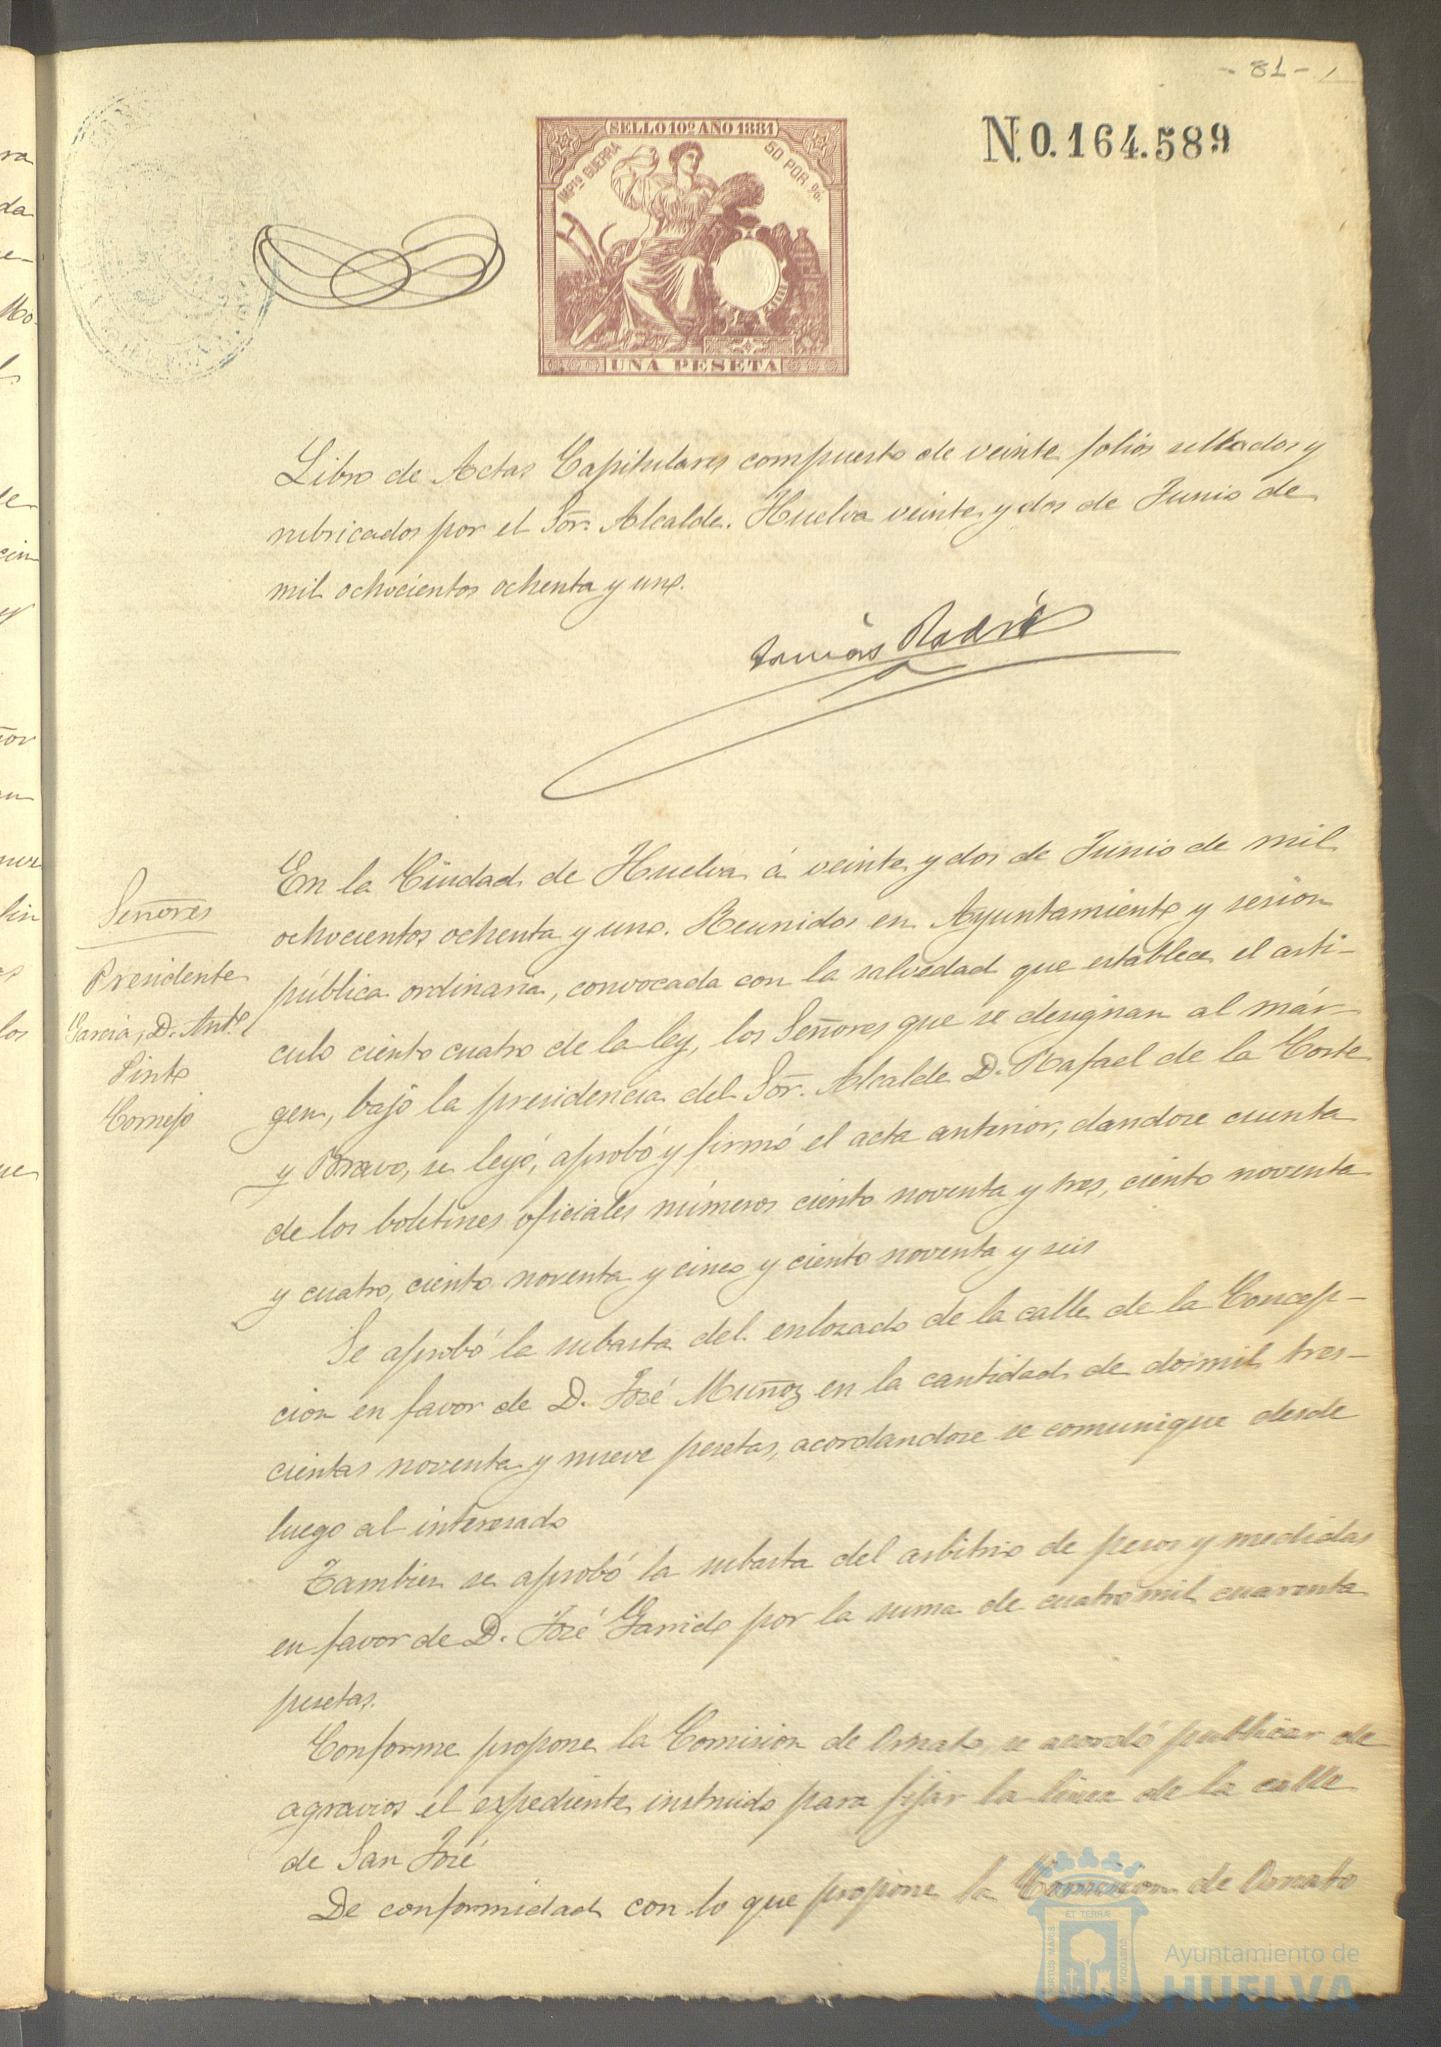 - 81 -
SELLO 10º AÑO 1881
IMPTO GUERRA
50 POR %
UNA PESETA
N.0.164.589
Libro de Actas Capitulares compuesto de veinte folios sellados y
rubricados por el Sor. Alcalde. Huelva veinte y dos de Junio de
mil ochocientos ochenta y uno.
Tomás
Señores
Presidente
Garcia, D. Antº
Pinto
Cornejo
En la Ciudad de Huelva á veinte y dos de Junio de mil
ochocientos ochenta y uno. Reunidos en Ayuntamiento y sesion
pública ordinaria, convocada con la salvedad que establece el arti-
culo ciento cuatro de la ley, los Señores que se designan al már-
gen, bajo la presidencia del Sor. Alcalde D. Rafael de la Corte
y Bravo, se leyó, aprobó y firmó el acta anterior, dandose cuenta
de los boletines oficiales números ciento noventa y tres, ciento noventa
y cuatro, ciento noventa y cinco y ciento noventa y seis
Se aprobó la subasta del enlozado de la calle de la Concep-
cion en favor de D. José Muñoz en la cantidad de dosmil tres-
cientas noventa y nueve pesetas, acordandose se comunique desde
luego al interesado
Tambien se aprobó la subasta del arbitrio de pesos y medidas
en favor de D. José Garrido por la suma de cuatro mil cuarenta
pesetas.
Conforme propone la Comision de Ornato, se acordó publicar de
agravios el expediente instruido para fijar la linea de la calle
de San José
De conformidad con lo que propone la Comision de Ornato
PORTUS MARIS
ET TERRÆ
CUSTODIA
Ayuntamiento de
HUELVA